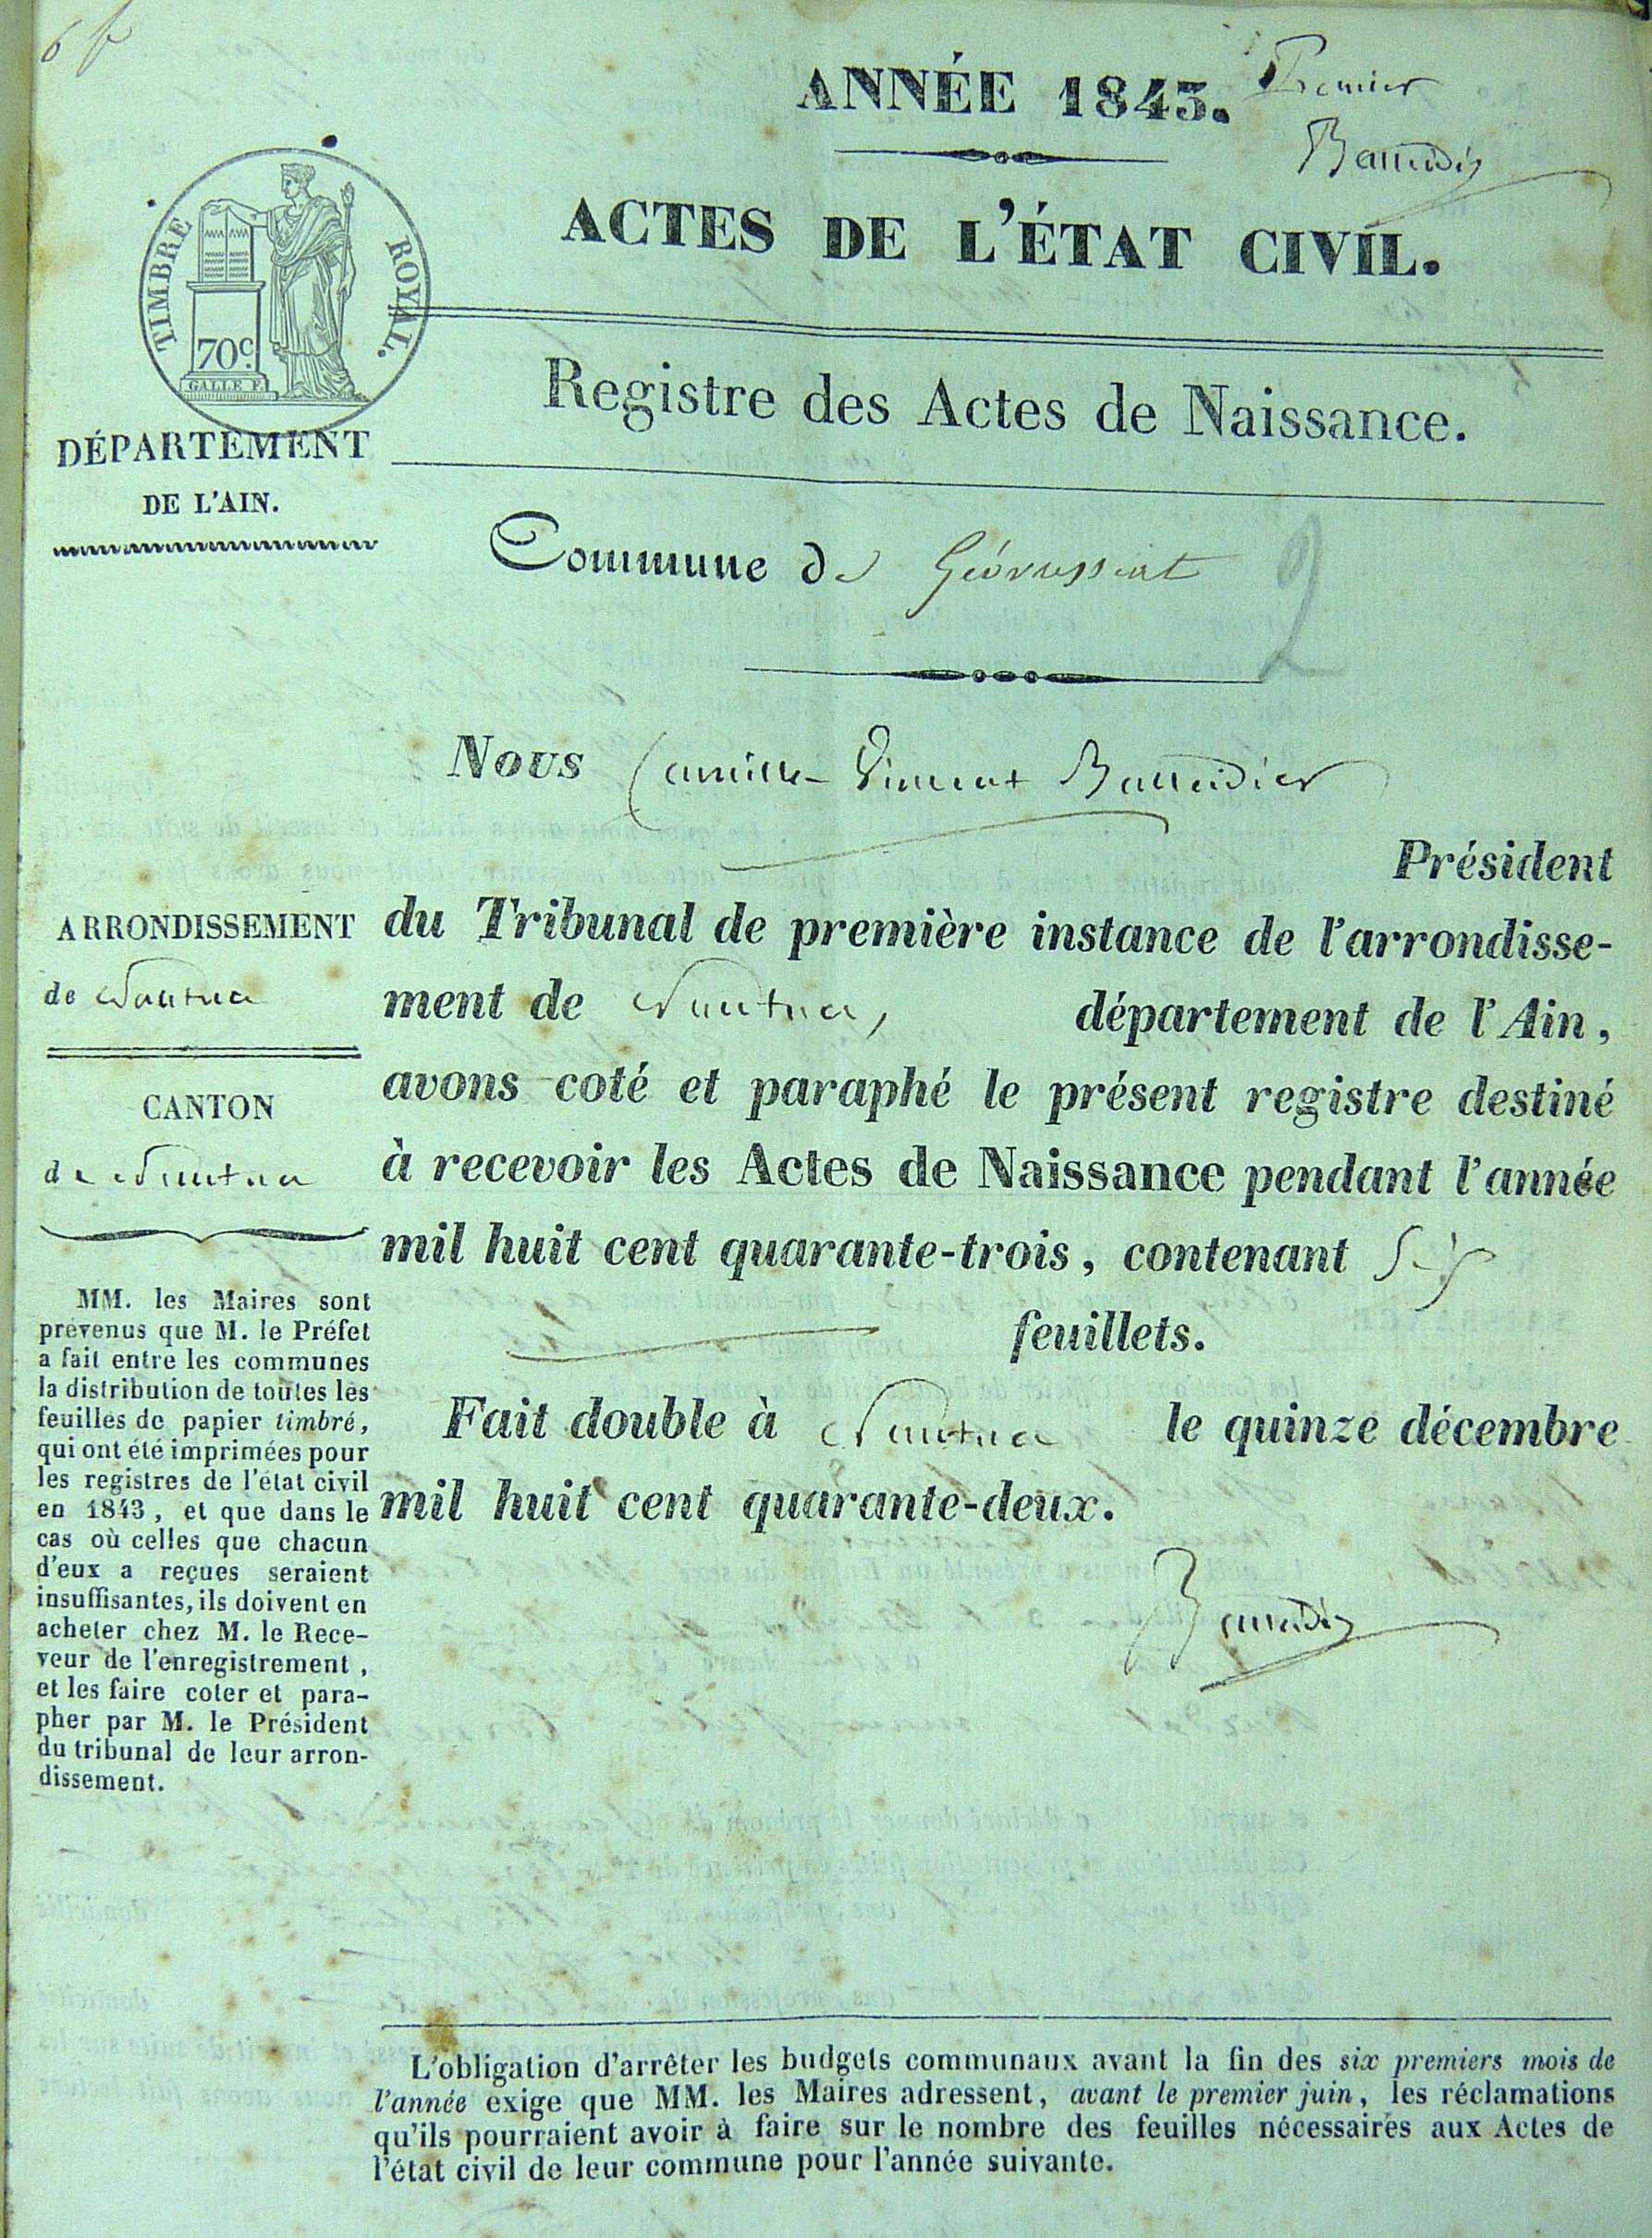 6 f
ANNÉE 1843.
Premier
ACTES DE L'ÉTAT CIVIL.
TIMBRE ROYAL.
70c.
GALLE F.
Registre des Actes de Naissance.
DÉPARTEMENT
DE L'AIN.
Commune de Géovressiat
2
Nous Camille Vincent
Président
du Tribunal de première instance de l'arrondisse-
ment de Nantua, département de l'Ain,
avons coté et paraphé le présent registre destiné
à recevoir les Actes de Naissance pendant l'année
mil huit cent quarante-trois, contenant Six
feuillets.
Fait double à Nantua le quinze décembre
mil huit cent quarante-deux.
ARRONDISSEMENT
de Nantua
CANTON
de Nantua
MM. les Maires sont
prévenus que M. le Préfet
a fait entre les communes
la distribution de toutes les
feuilles de papier timbré,
qui ont été imprimées pour
les registres de l'état civil
en 1843, et que dans le
cas où celles que chacun
d'eux a reçues seraient
insuffisantes, ils doivent en
acheter chez M. le Rece-
veur de l'enregistrement,
et les faire coter et para-
pher par M. le Président
du tribunal de leur arron-
dissement.
L'obligation d'arrêter les budgets communaux avant la fin des six premiers mois de
l'année exige que MM. les Maires adressent, avant le premier juin, les réclamations
qu'ils pourraient avoir à faire sur le nombre des feuilles nécessaires aux Actes de
l'état civil de leur commune pour l'année suivante.